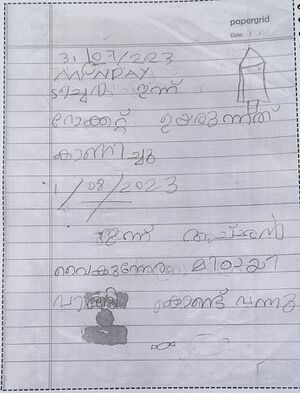 papergrid
Date: / /
31/07/2023
MONDAY
ടീച്ചർ ഇന്ന്
റോക്കറ്റ് ഉയരുന്നത്
കാണിച്ചു
1/08/2023
ഇന്ന് അച്ഛൻ
വൈകുന്നേരം മിഠായി
കൊണ്ട് വന്നു